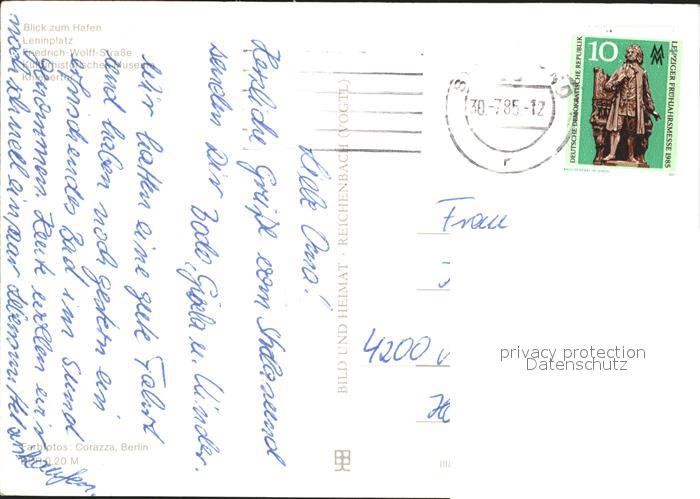 Blick zum Hafen
Leninplatz
Friedrich-Wolff-Straße
Kulturhistorisches Museum
Liebe Oma!
Herzliche Grüße vom Sundstrand
senden Dir Bodo, Gisela u. Kinder.
Wir hatten eine gute Fahrt
und haben noch gestern ein
erfrischendes Bad im Sund
genommen. Heute wollen wir
noch schnell ein paar Lebensmittel
einkaufen.
Farbfotos: Corazza, Berlin
0,20 M
BILD UND HEIMAT · REICHENBACH (VOGTL)
30.-7.85.-12
r
10
DEUTSCHE DEMOKRATISCHE REPUBLIK
LEIPZIGER FRÜHJAHRSMESSE 1985
Frau
4200
privacy protection
Datenschutz